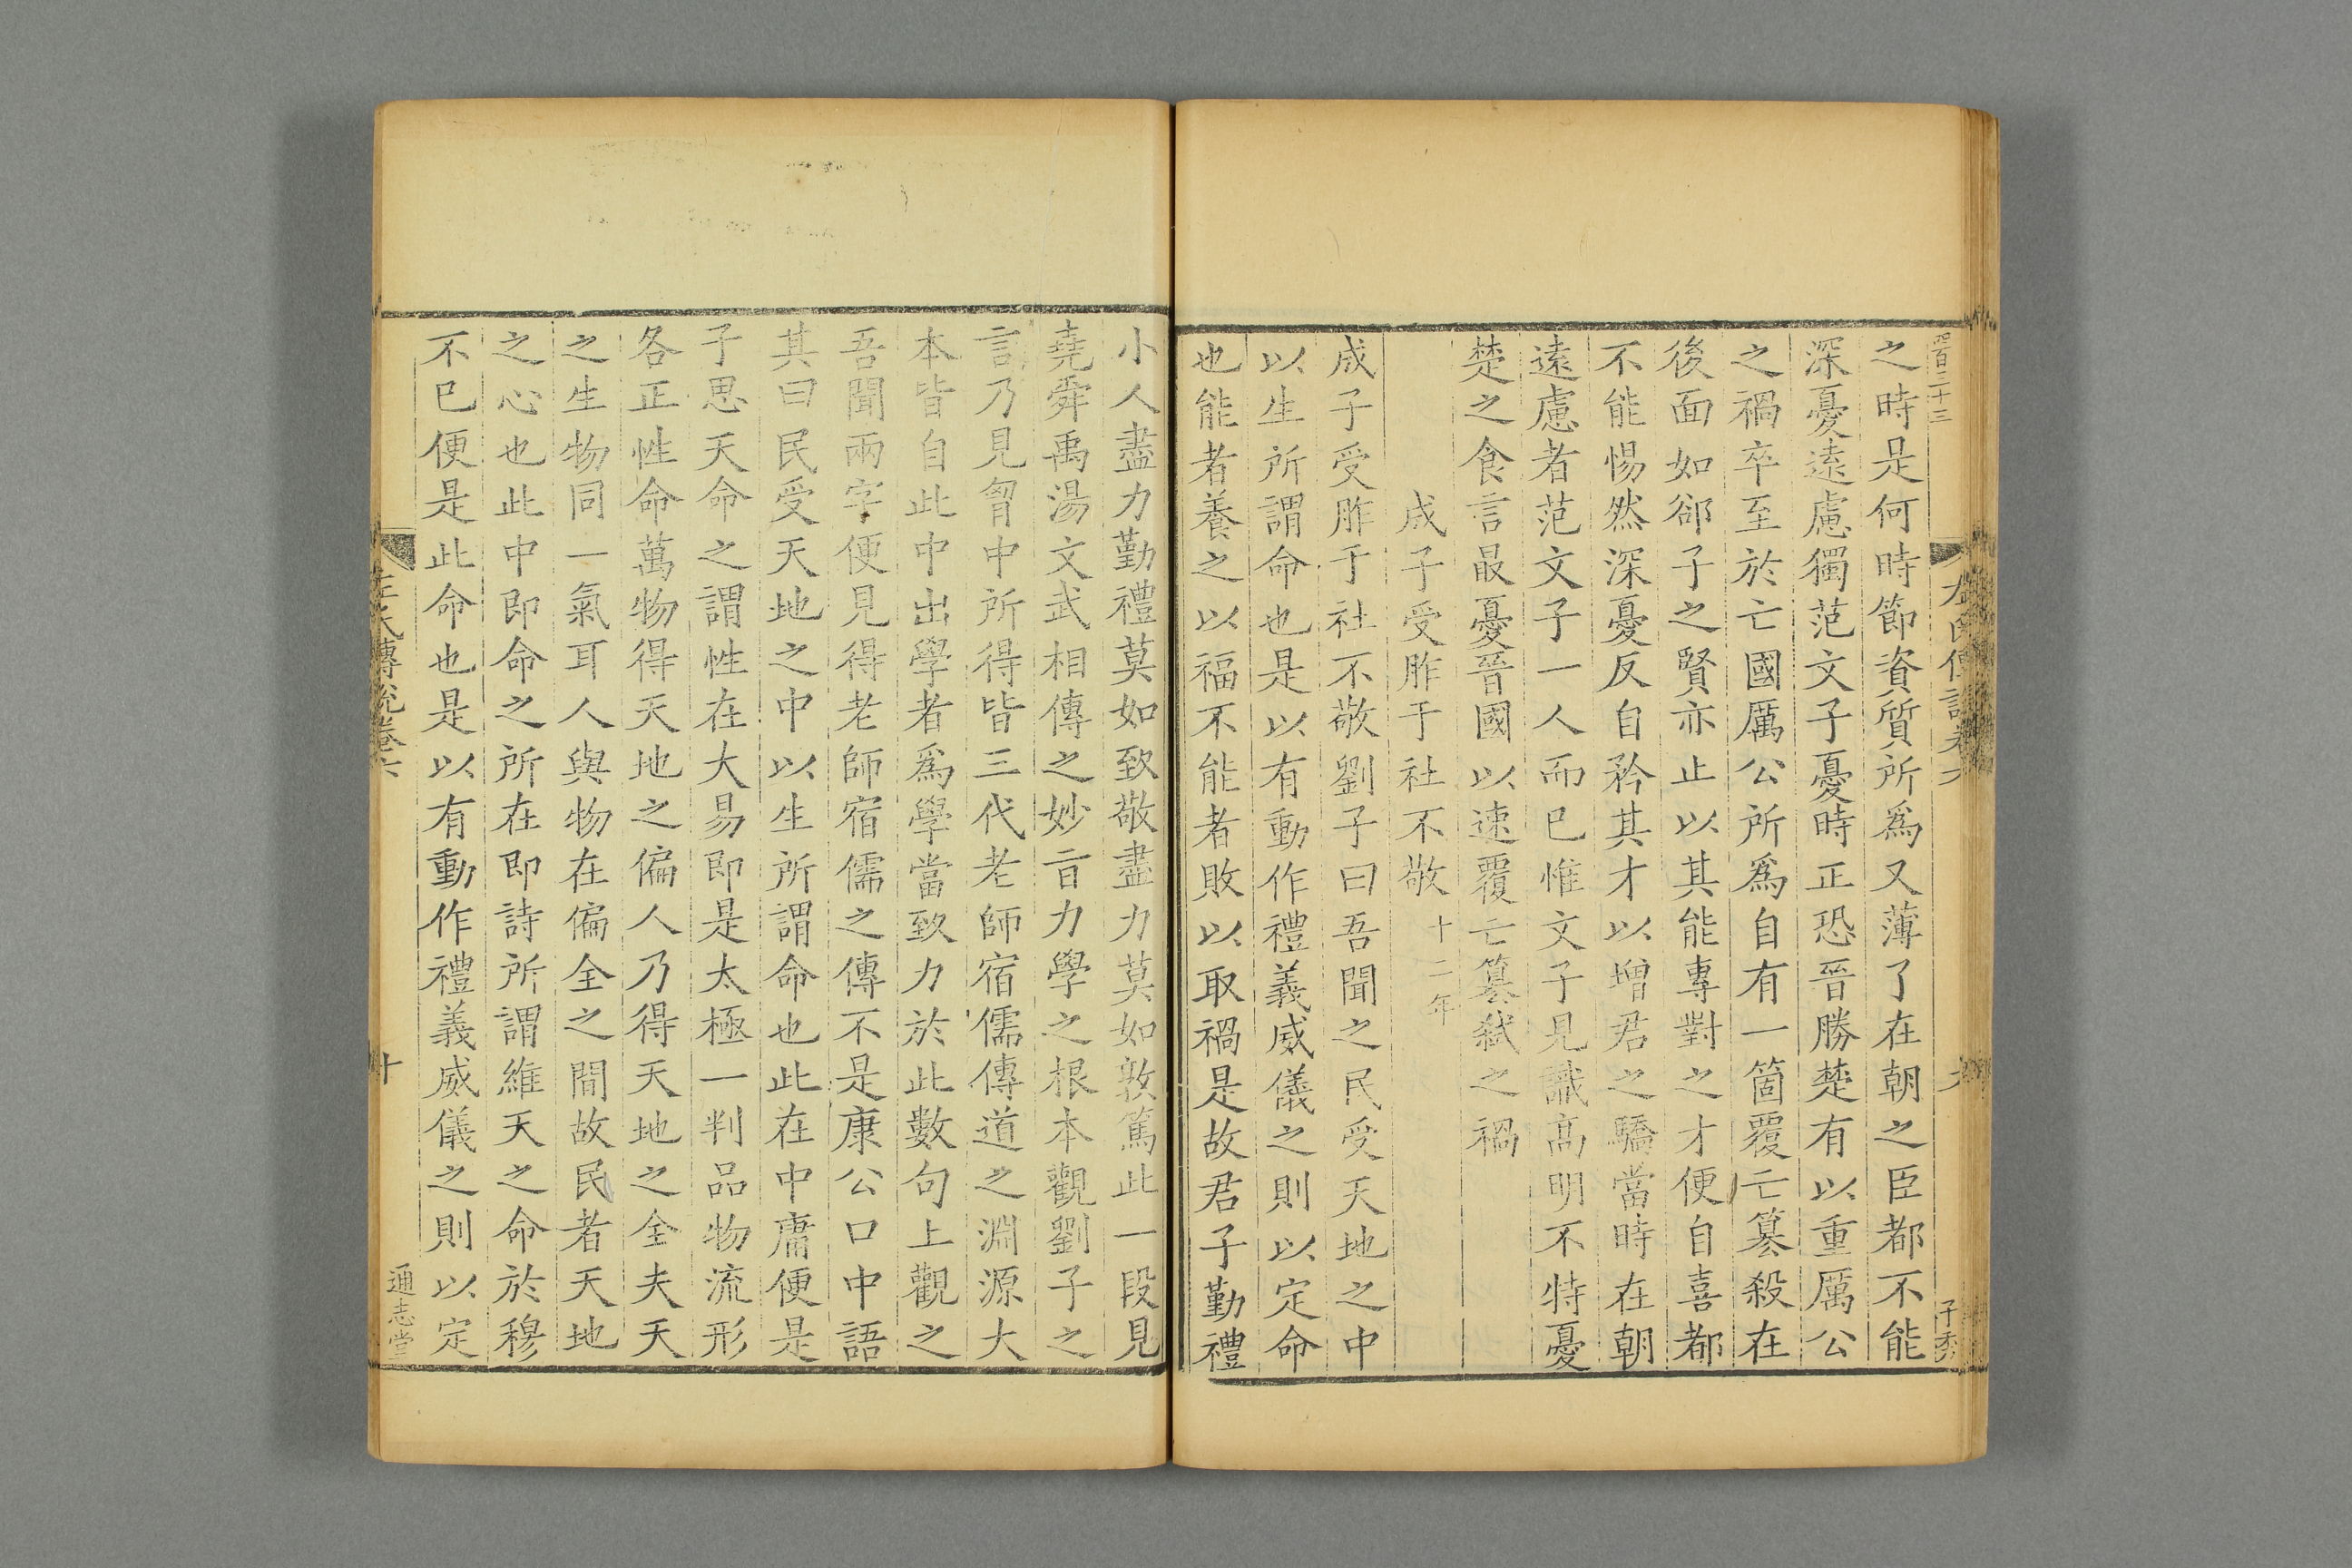 四百二十三
左氏傳說卷六
子秀
之時是何時節資質所爲又薄了在朝之臣都不能
深憂遠慮獨范文子憂時正恐晉勝楚有以重厲公
之禍卒至於亡國厲公所爲自有一箇覆亡簒殺在
後面如郤子之賢亦止以其能專對之才便自喜都
不能惕然深憂反自矜其才以增君之驕當時在朝
遠慮者范文子一人而已惟文子見識高明不特憂
楚之食言最憂晉國以速覆亡簒弑之禍
成子受胙于社不敬十二年
成子受胙于社不敬劉子曰吾聞之民受天地之中
以生所謂命也是以有動作禮義威儀之則以定命
也能者養之以福不能者敗以取禍是故君子勤禮
小人盡力勤禮莫如致敬盡力莫如敦篤此一段見
堯舜禹湯文武相傳之妙㫖力學之根本觀劉子之
言乃見胷中所得皆三代老師宿儒傳道之淵源大
本皆自此中出學者爲學當致力於此數句上觀之
吾聞兩字便見得老師宿儒之傳不是康公口中語
其曰民受天地之中以生所謂命也此在中庸便是
子思天命之謂性在大易即是太極一判品物流形
各正性命萬物得天地之偏人乃得天地之全夫天
之生物同一氣耳人與物在偏全之間故民者天地
之心也此中即命之所在即詩所謂維天之命於穆
不已便是此命也是以有動作禮義威儀之則以定
左氏傳說卷六
十
通志堂